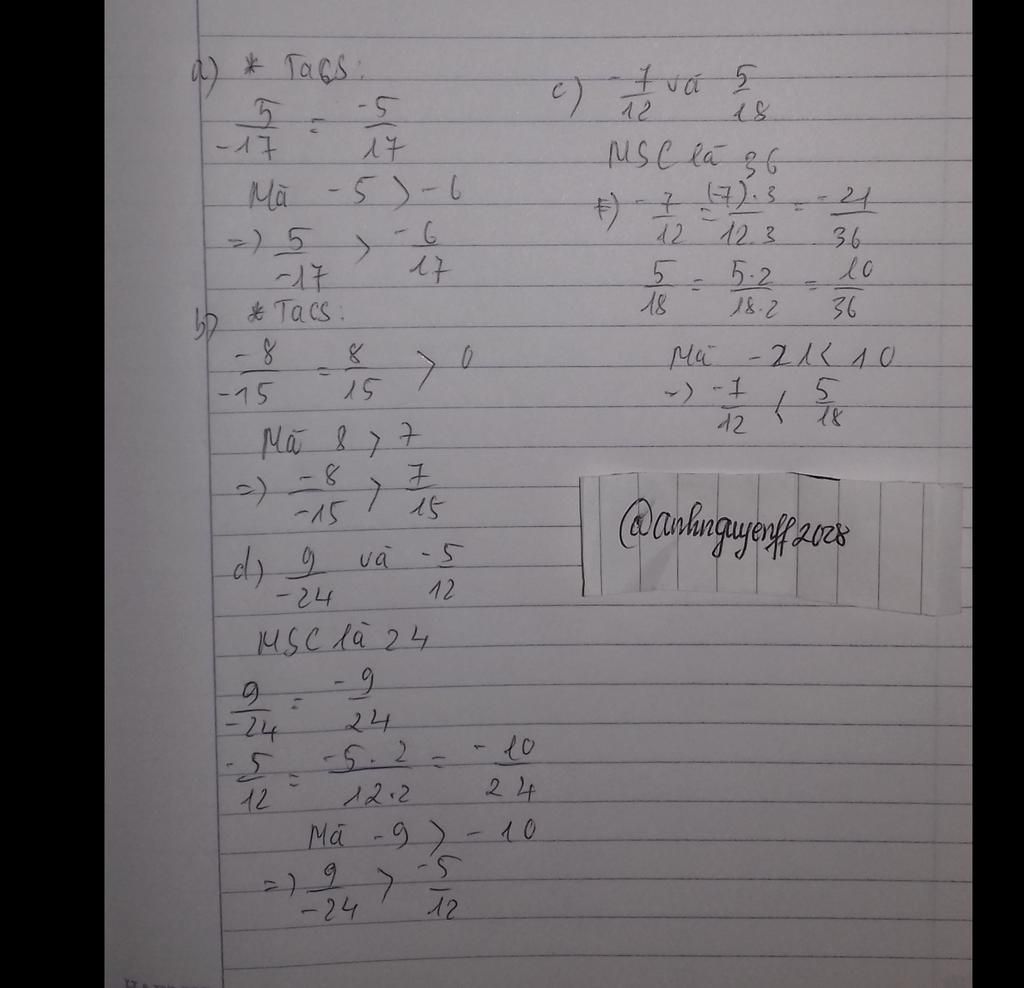 a) * Tacs:
5/-17 = -5/17
Mà -5 > -6
=> 5/-17 > -6/17
b) * Tacs:
-8/-15 = 8/15 > 0
Mà 8 > 7
=> -8/-15 > 7/15
d) 9/-24 và -5/12
MSC là 24
9/-24 = -9/24
-5/12 = -5.2/12.2 = -10/24
Mà -9 > -10
=> 9/-24 > -5/12
c) -7/12 và 5/18
MSC là 36
-7/12 = (-7).3/12.3 = -21/36
5/18 = 5.2/18.2 = 10/36
Mà -21 < 10
=> -7/12 < 5/18
@anhnguyenff2028